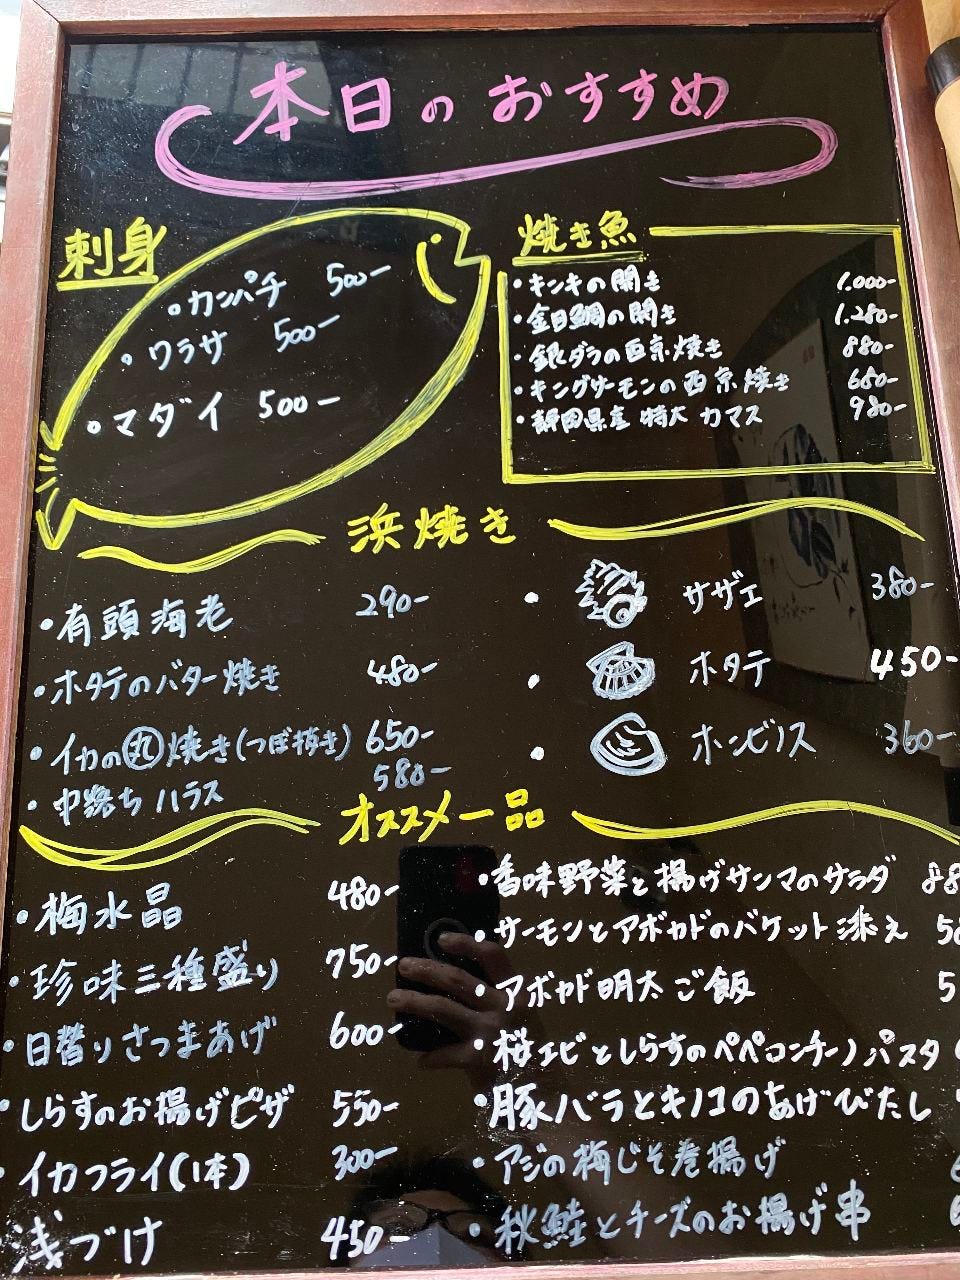 本日のおすすめ
刺身
・カンパチ 500-
・ワラサ 500-
・マダイ 500-
焼き魚
・キンキの開き 1.000-
・金目鯛の開き 1.280-
・銀ダラの西京焼き 880-
・キングサーモンの西京焼き 680-
・静岡県産 特大 カマス 980-
浜焼き
・有頭海老 290-
・ホタテのバター焼き 480-
・イカの丸焼き(つぼ抜き) 650-
・中落ちハラス 580-
・サザエ 380-
・ホタテ 450-
・ホンビノス 360-
オススメ一品
・梅水晶 480-
・珍味三種盛り 750-
・日替りさつまあげ 600-
・しらすのお揚げピザ 550-
・イカフライ(1本) 300-
浅づけ 450-
・香味野菜と揚げサンマのサラダ 88
・サーモンとアボカドのバケット添え 58
・アボカド明太ご飯 5
・桜エビとしらすのペペロンチーノパスタ
・豚バラとキノコのあげびたし
・アジの梅じそ巻揚げ
・秋鮭とチーズのお揚げ串